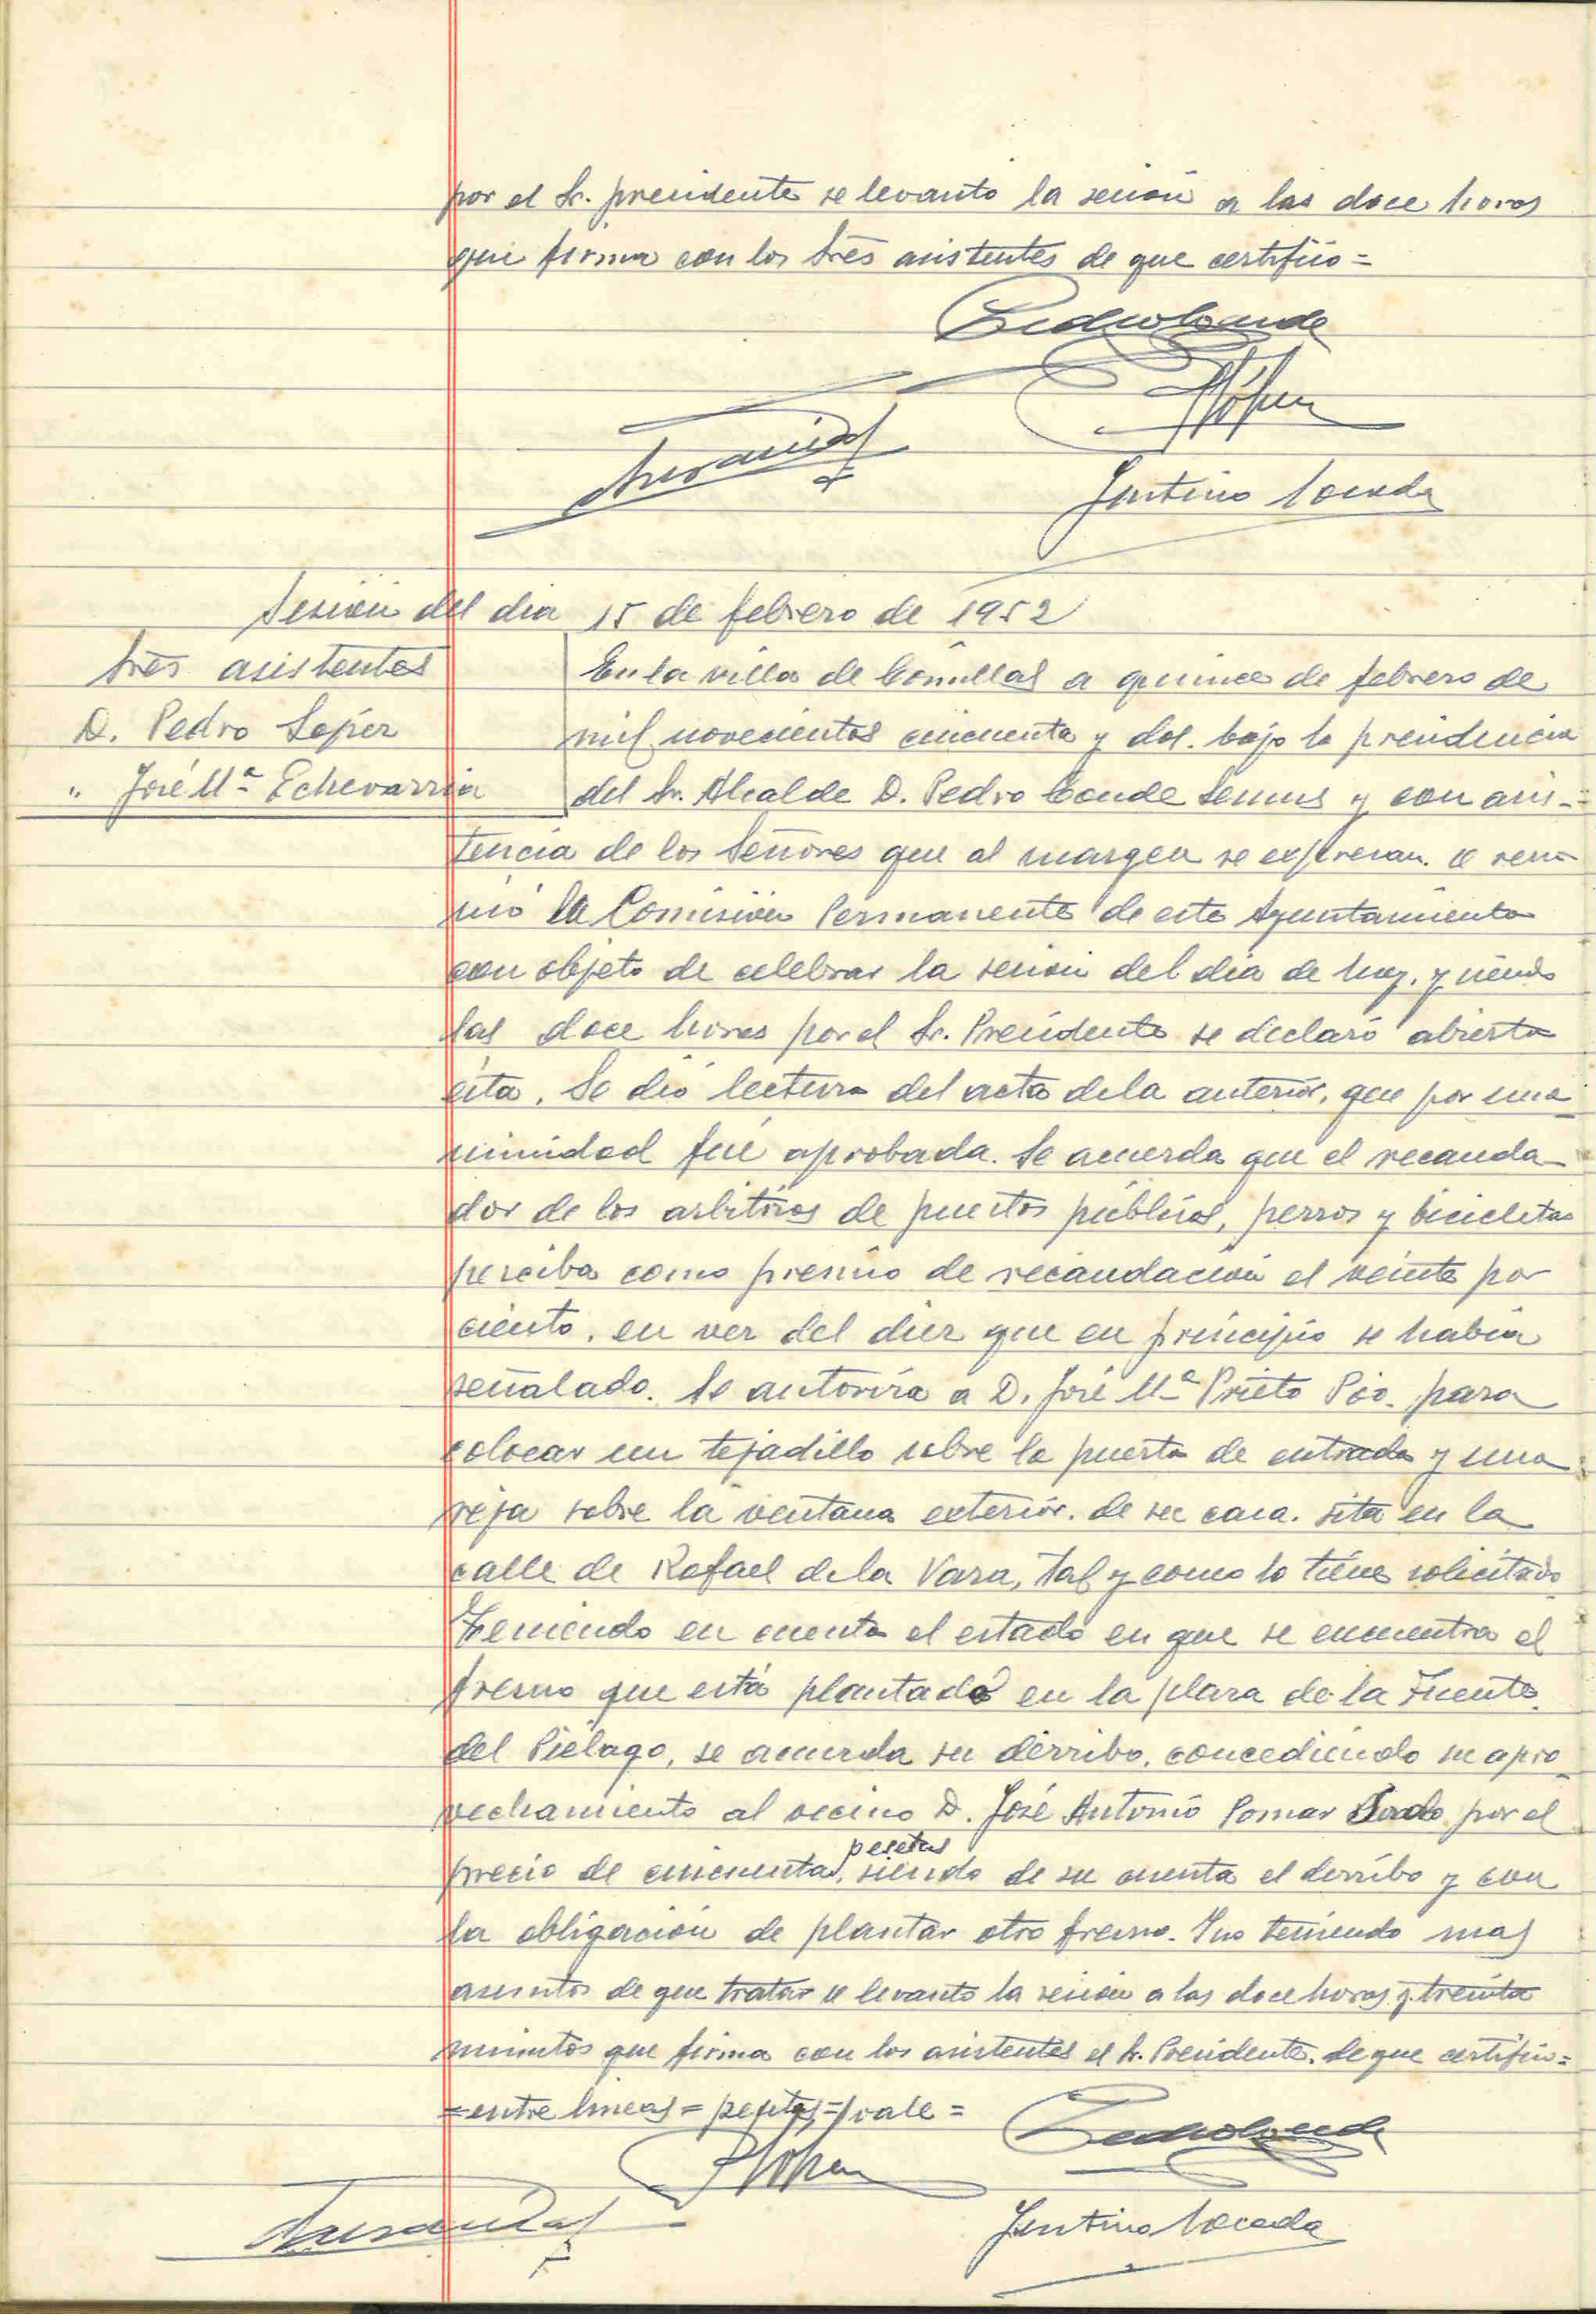 por el Sr. presidente se levanto la sesion a las doce horas
que firma con los Sres asistentes de que certifico =
Pedro Conde
PLópez
Justino Poceda
Sesión del dia 15 de febrero de 1952
Sres asistentes
D. Pedro Lopez
" José Mª Echevarria
En la villa de Comillas a quince de febrero de
mil novecientos cincuenta y dos. bajo la presidencia
del Sr. Alcalde D. Pedro Conde y con asis-
tencia de los Señores que al margen se expresan. se reu-
nió la Comisión Permanente de este Ayuntamiento
con objeto de celebrar la sesion del dia de hoy. y siendo
las doce horas por el Sr. Presidente se declaró abierta
esta. Se dió lectura del acta de la anterior, que por una-
nimidad fué aprobada. Se acuerda que el recauda-
dor de los arbitrios de puestos públicos, perros y bicicletas
perciba como premio de recaudación el veinte por
ciento, en vez del diez que en principio se habia
señalado. Se autoriza a D. José Mª Prieto Pio. para
colocar un tejadillo sobre la puerta de entrada y una
reja sobre la ventana exterior. de su casa. sita en la
calle de Rafael de la Vara, tal y como lo tiene solicitado.
Teniendo en cuenta el estado en que se encuentra el
fresno que está plantado en la plaza de la Fuente
del Piélago, se acuerda su derribo. concediéndo su apro-
vechamiento al vecino D. José Antonio Pomar por el
precio de cincuenta pesetas, siendo de su cuenta el derribo y con
la obligación de plantar otro fresno. Y no teniendo mas
asuntos de que tratar se levanto la sesion a las doce horas y treinta
minutos que firma con los asistentes el Sr. Presidente. de que certifico =
= entre lineas = pesetas = vale =
Pedro Conde
PLópez
Justino Poceda